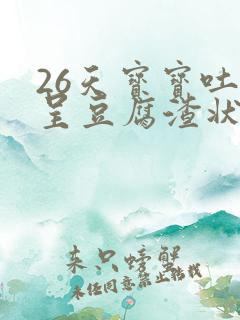 26天宝宝吐
呈豆腐渣状
来只螃蟹
未经同意禁止转载